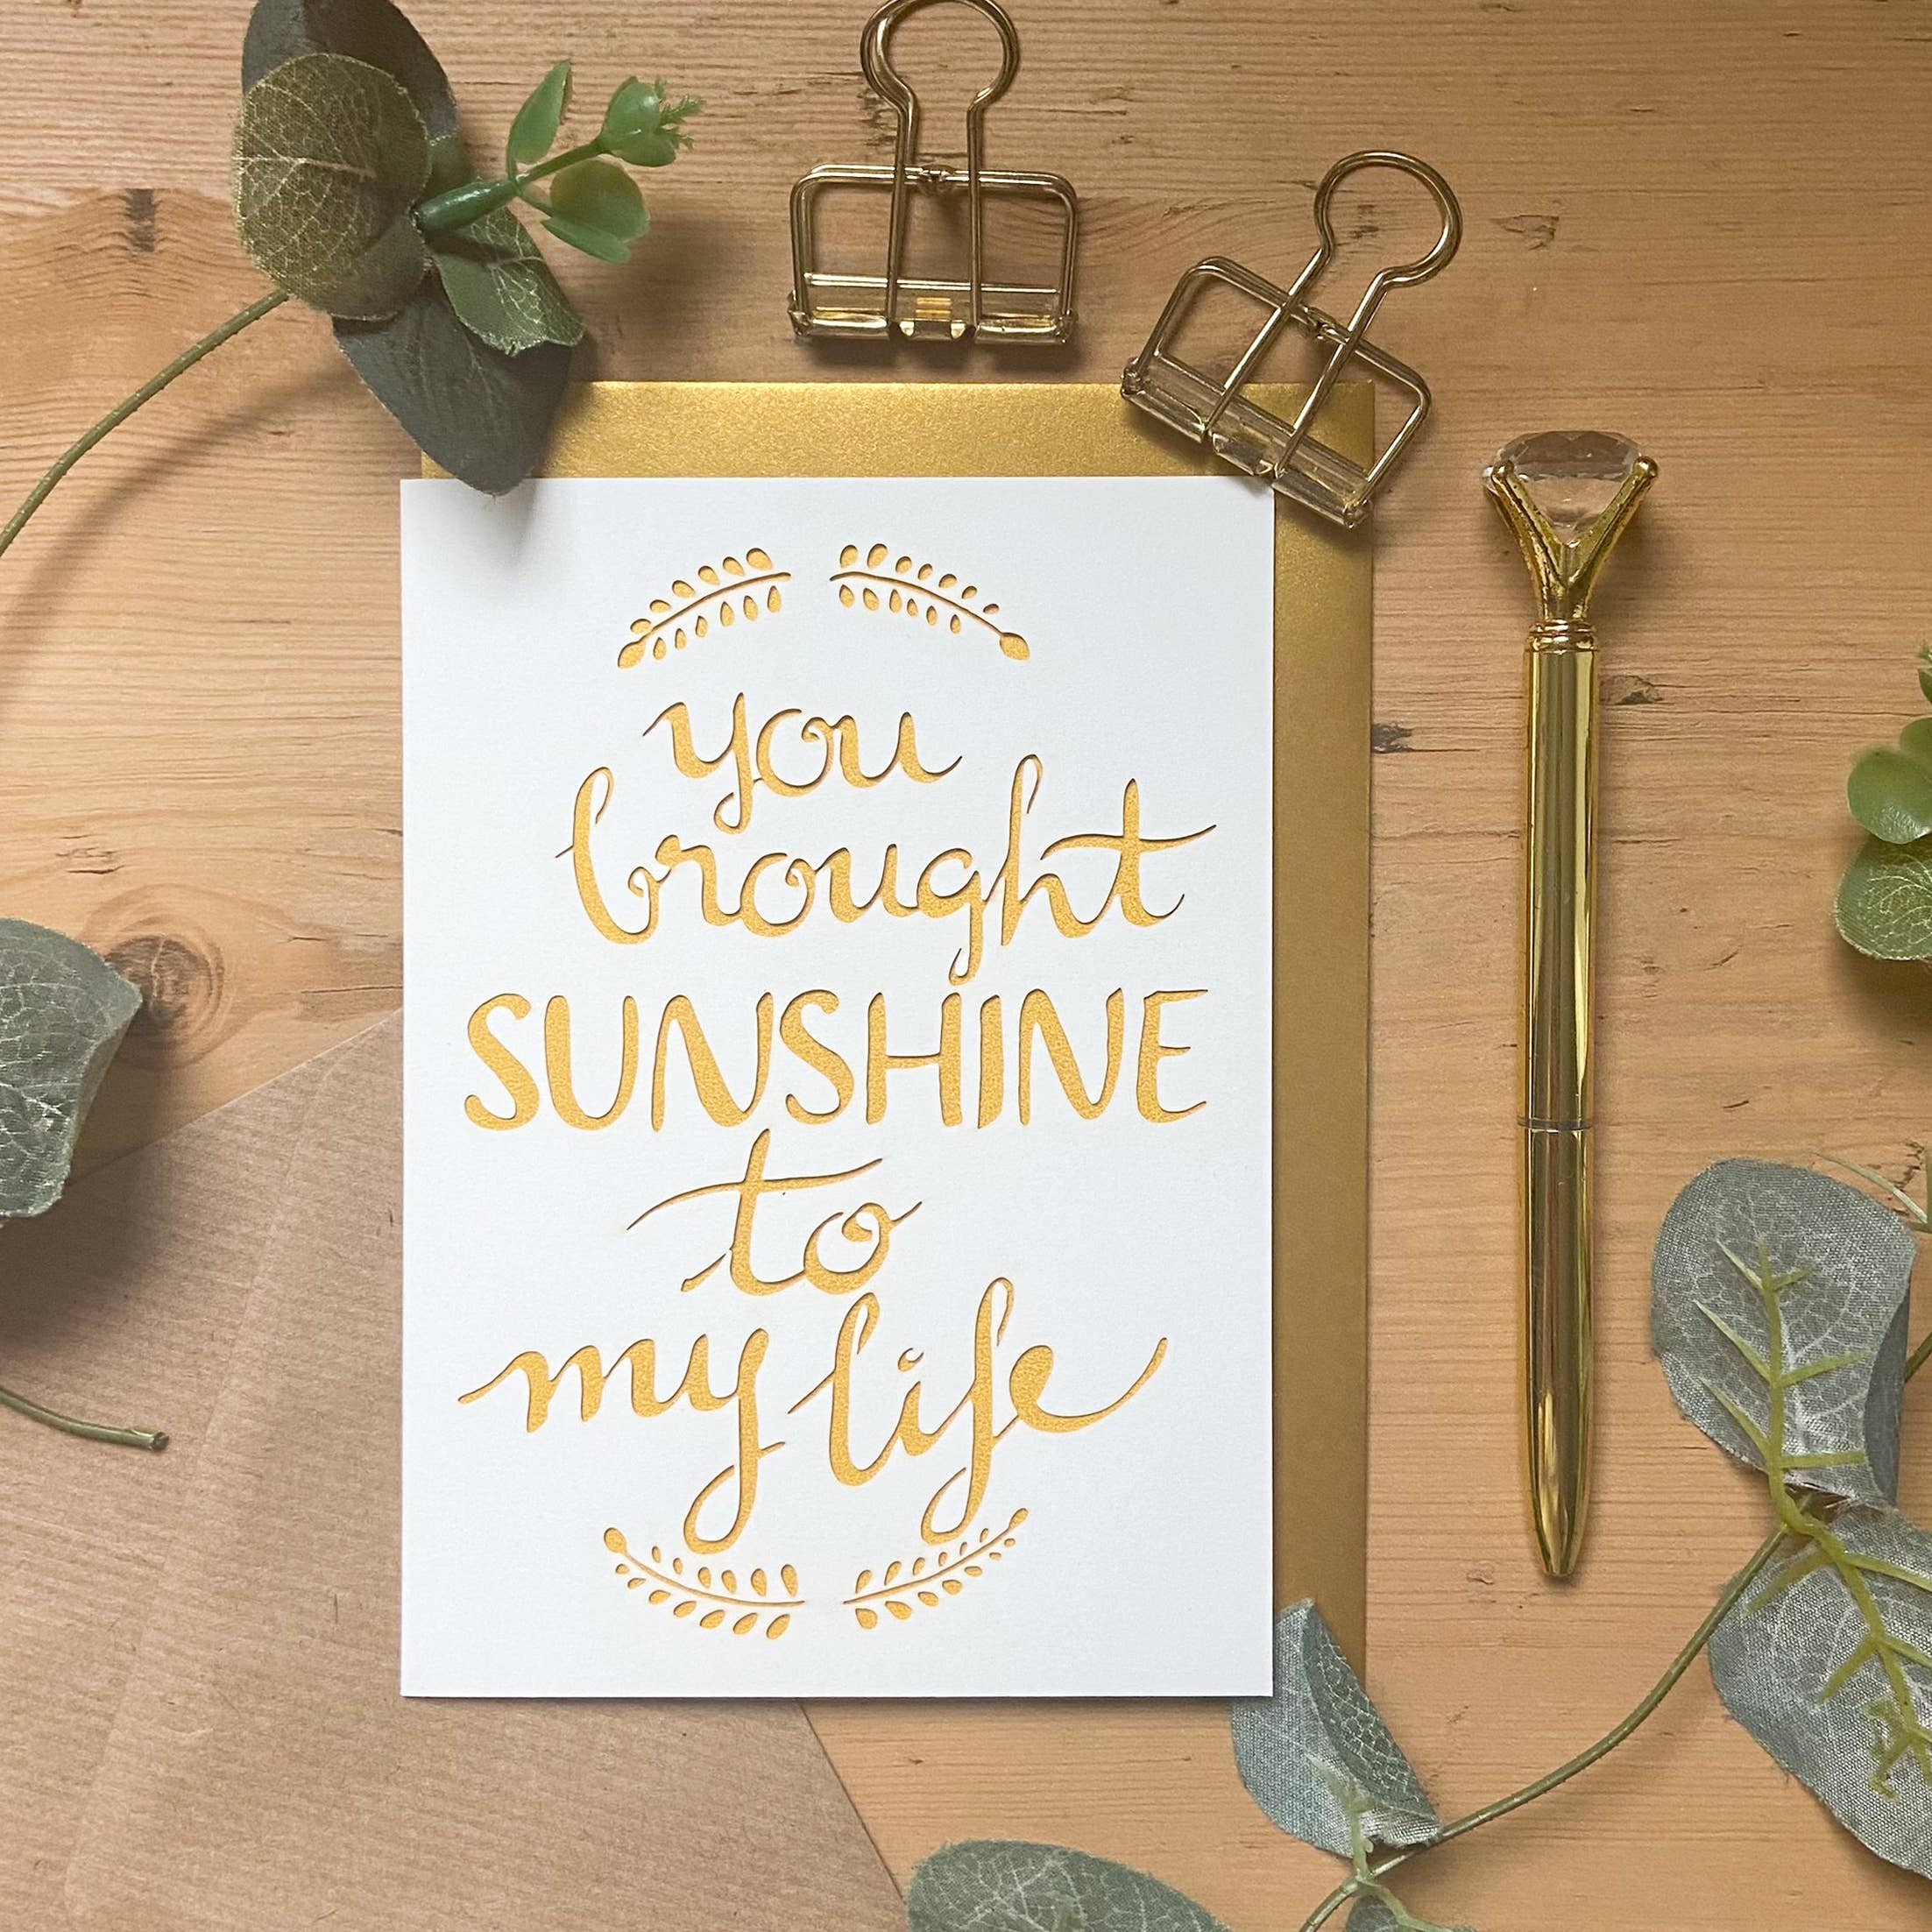 you
brought
SUNSHINE
to
my life